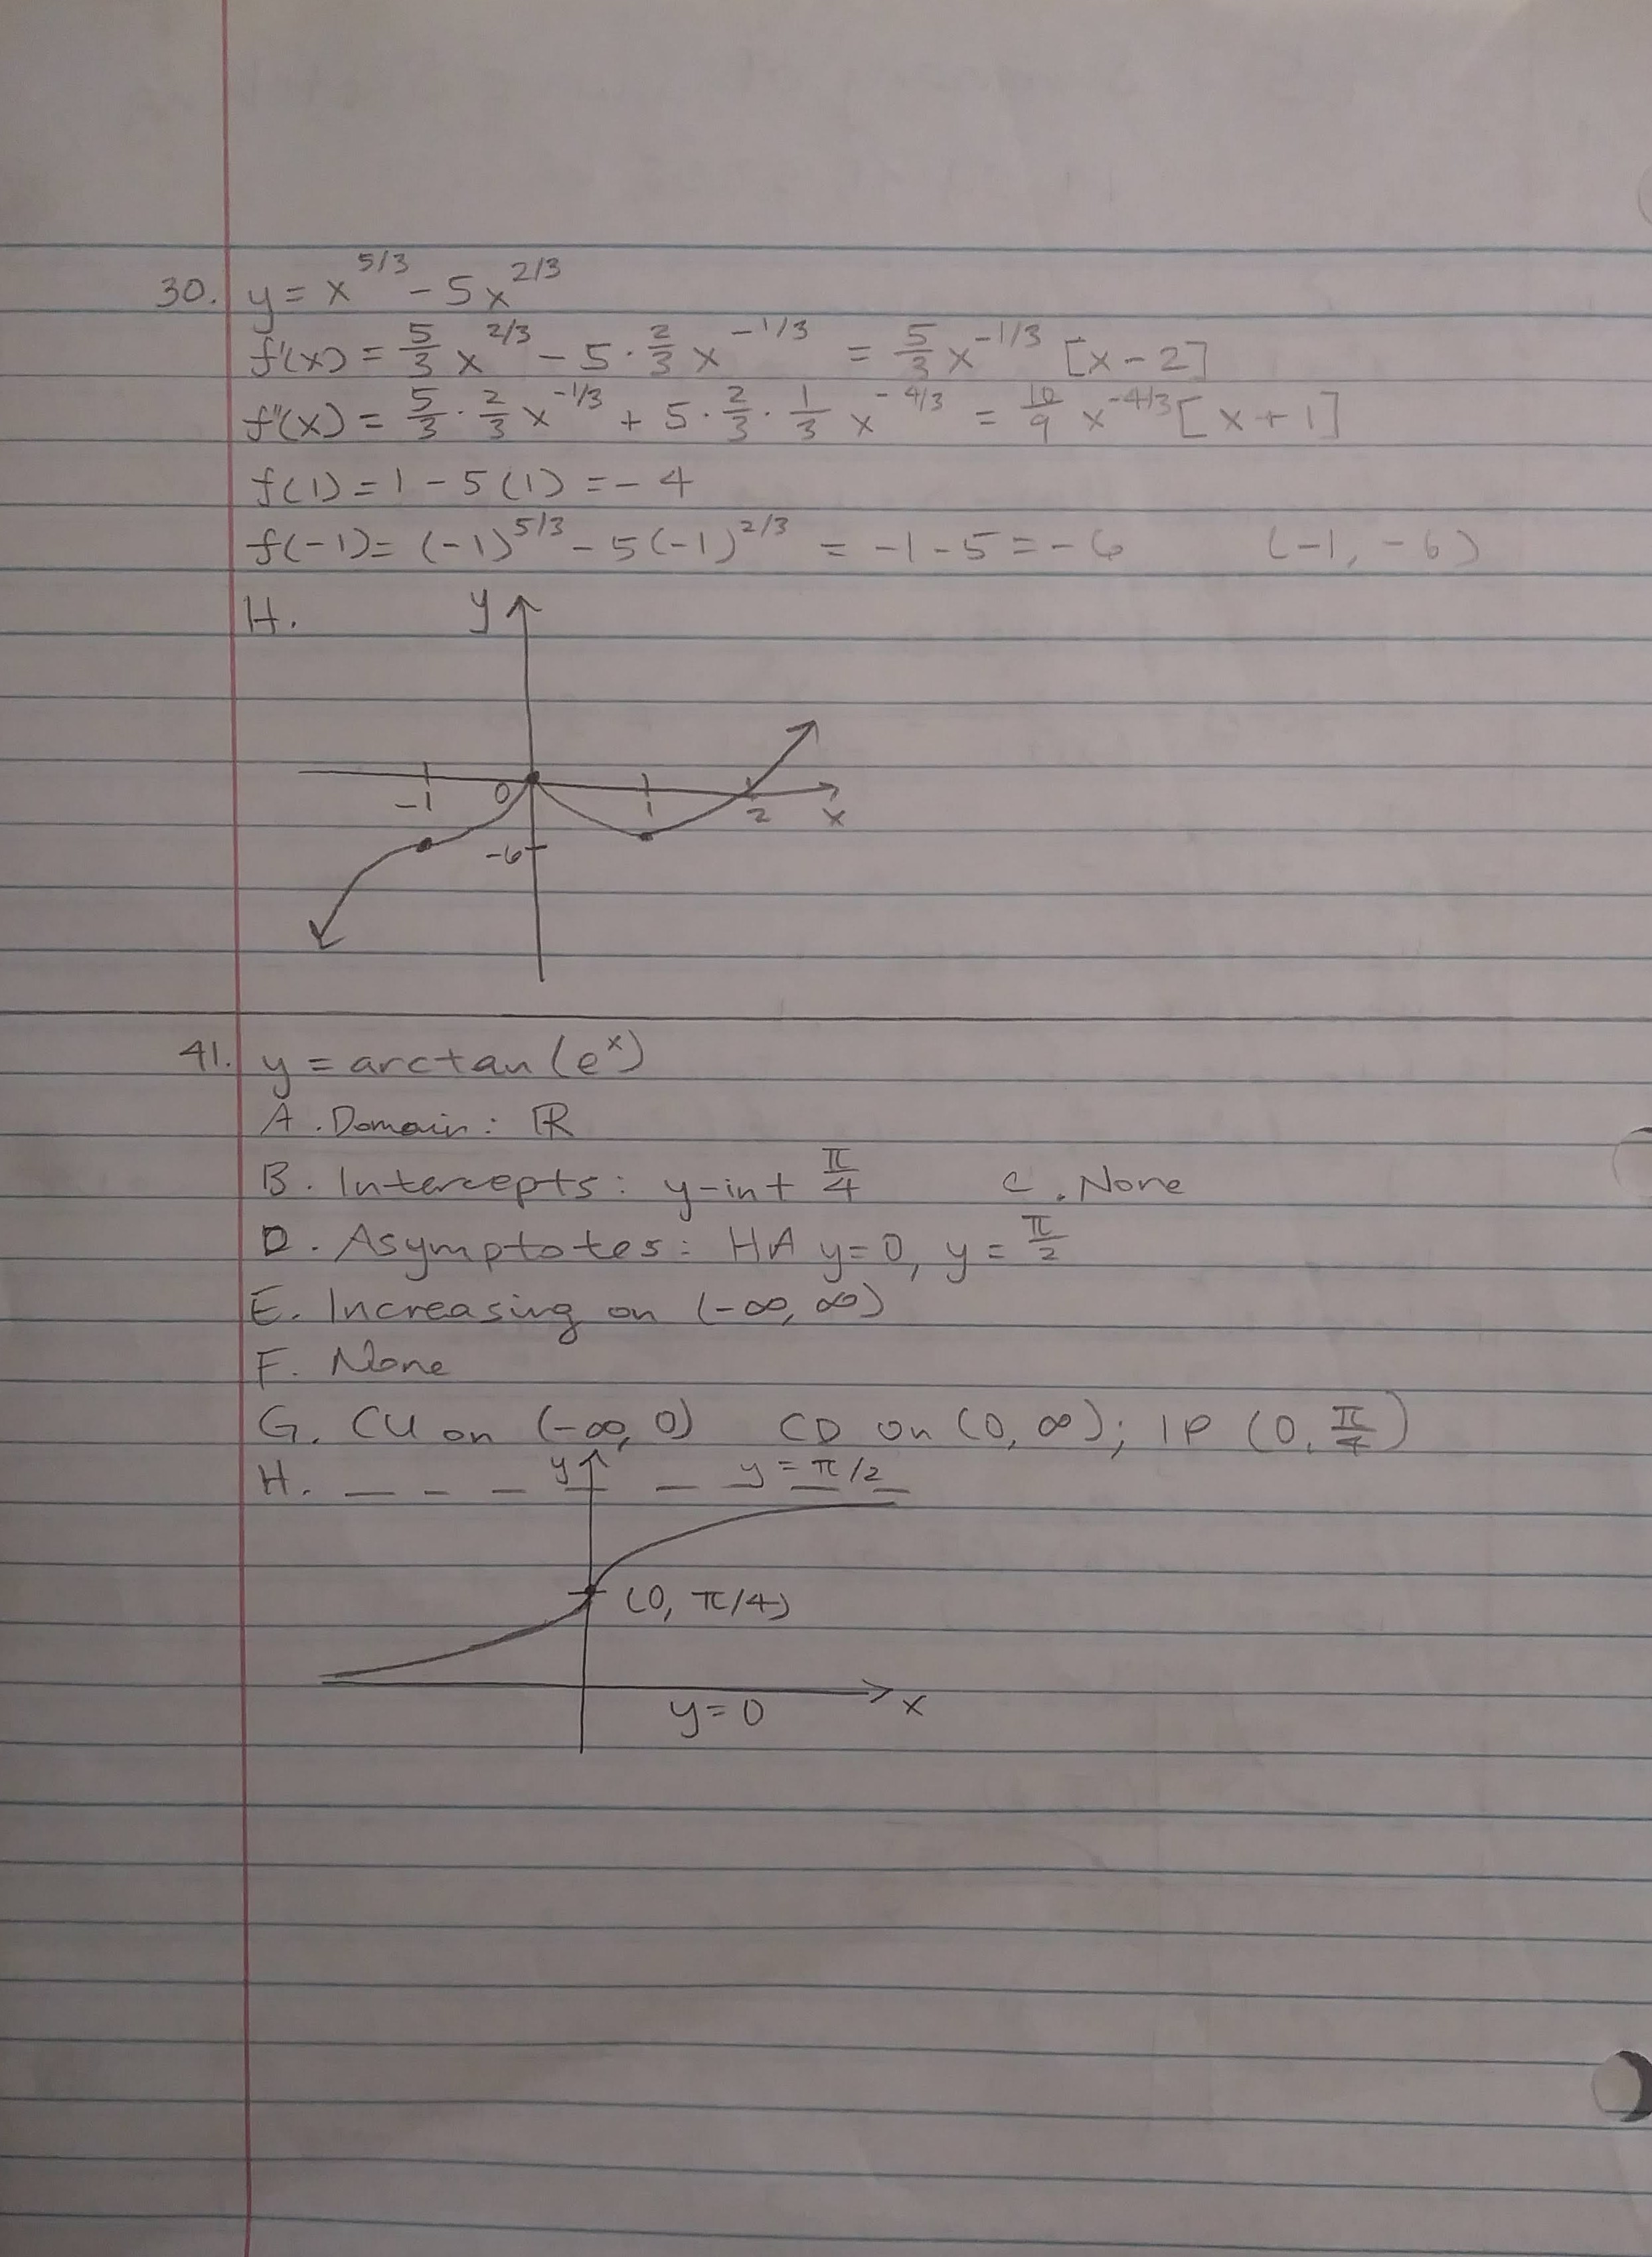 30. y = x^5/3 - 5x^2/3
f'(x) = 5/3 x^2/3 - 5 · 2/3 x^-1/3 = 5/3 x^-1/3 [x - 2]
f"(x) = 5/3 · 2/3 x^-1/3 + 5 · 2/3 · 1/3 x^-4/3 = 10/9 x^-4/3 [x + 1]
f(1) = 1 - 5(1) = -4
f(-1) = (-1)^5/3 - 5(-1)^2/3 = -1 - 5 = -6 (-1, -6)
H. y
-1 0 1 2 x
-6
41. y = arctan(e^x)
A. Domain: ℝ
B. Intercepts: y-int π/4 C. None
D. Asymptotes: HA y=0, y = π/2
E. Increasing on (-∞, ∞)
F. None
G. CU on (-∞, 0) CD on (0, ∞); IP (0, π/4)
H. y y = π/2
(0, π/4)
y=0 x